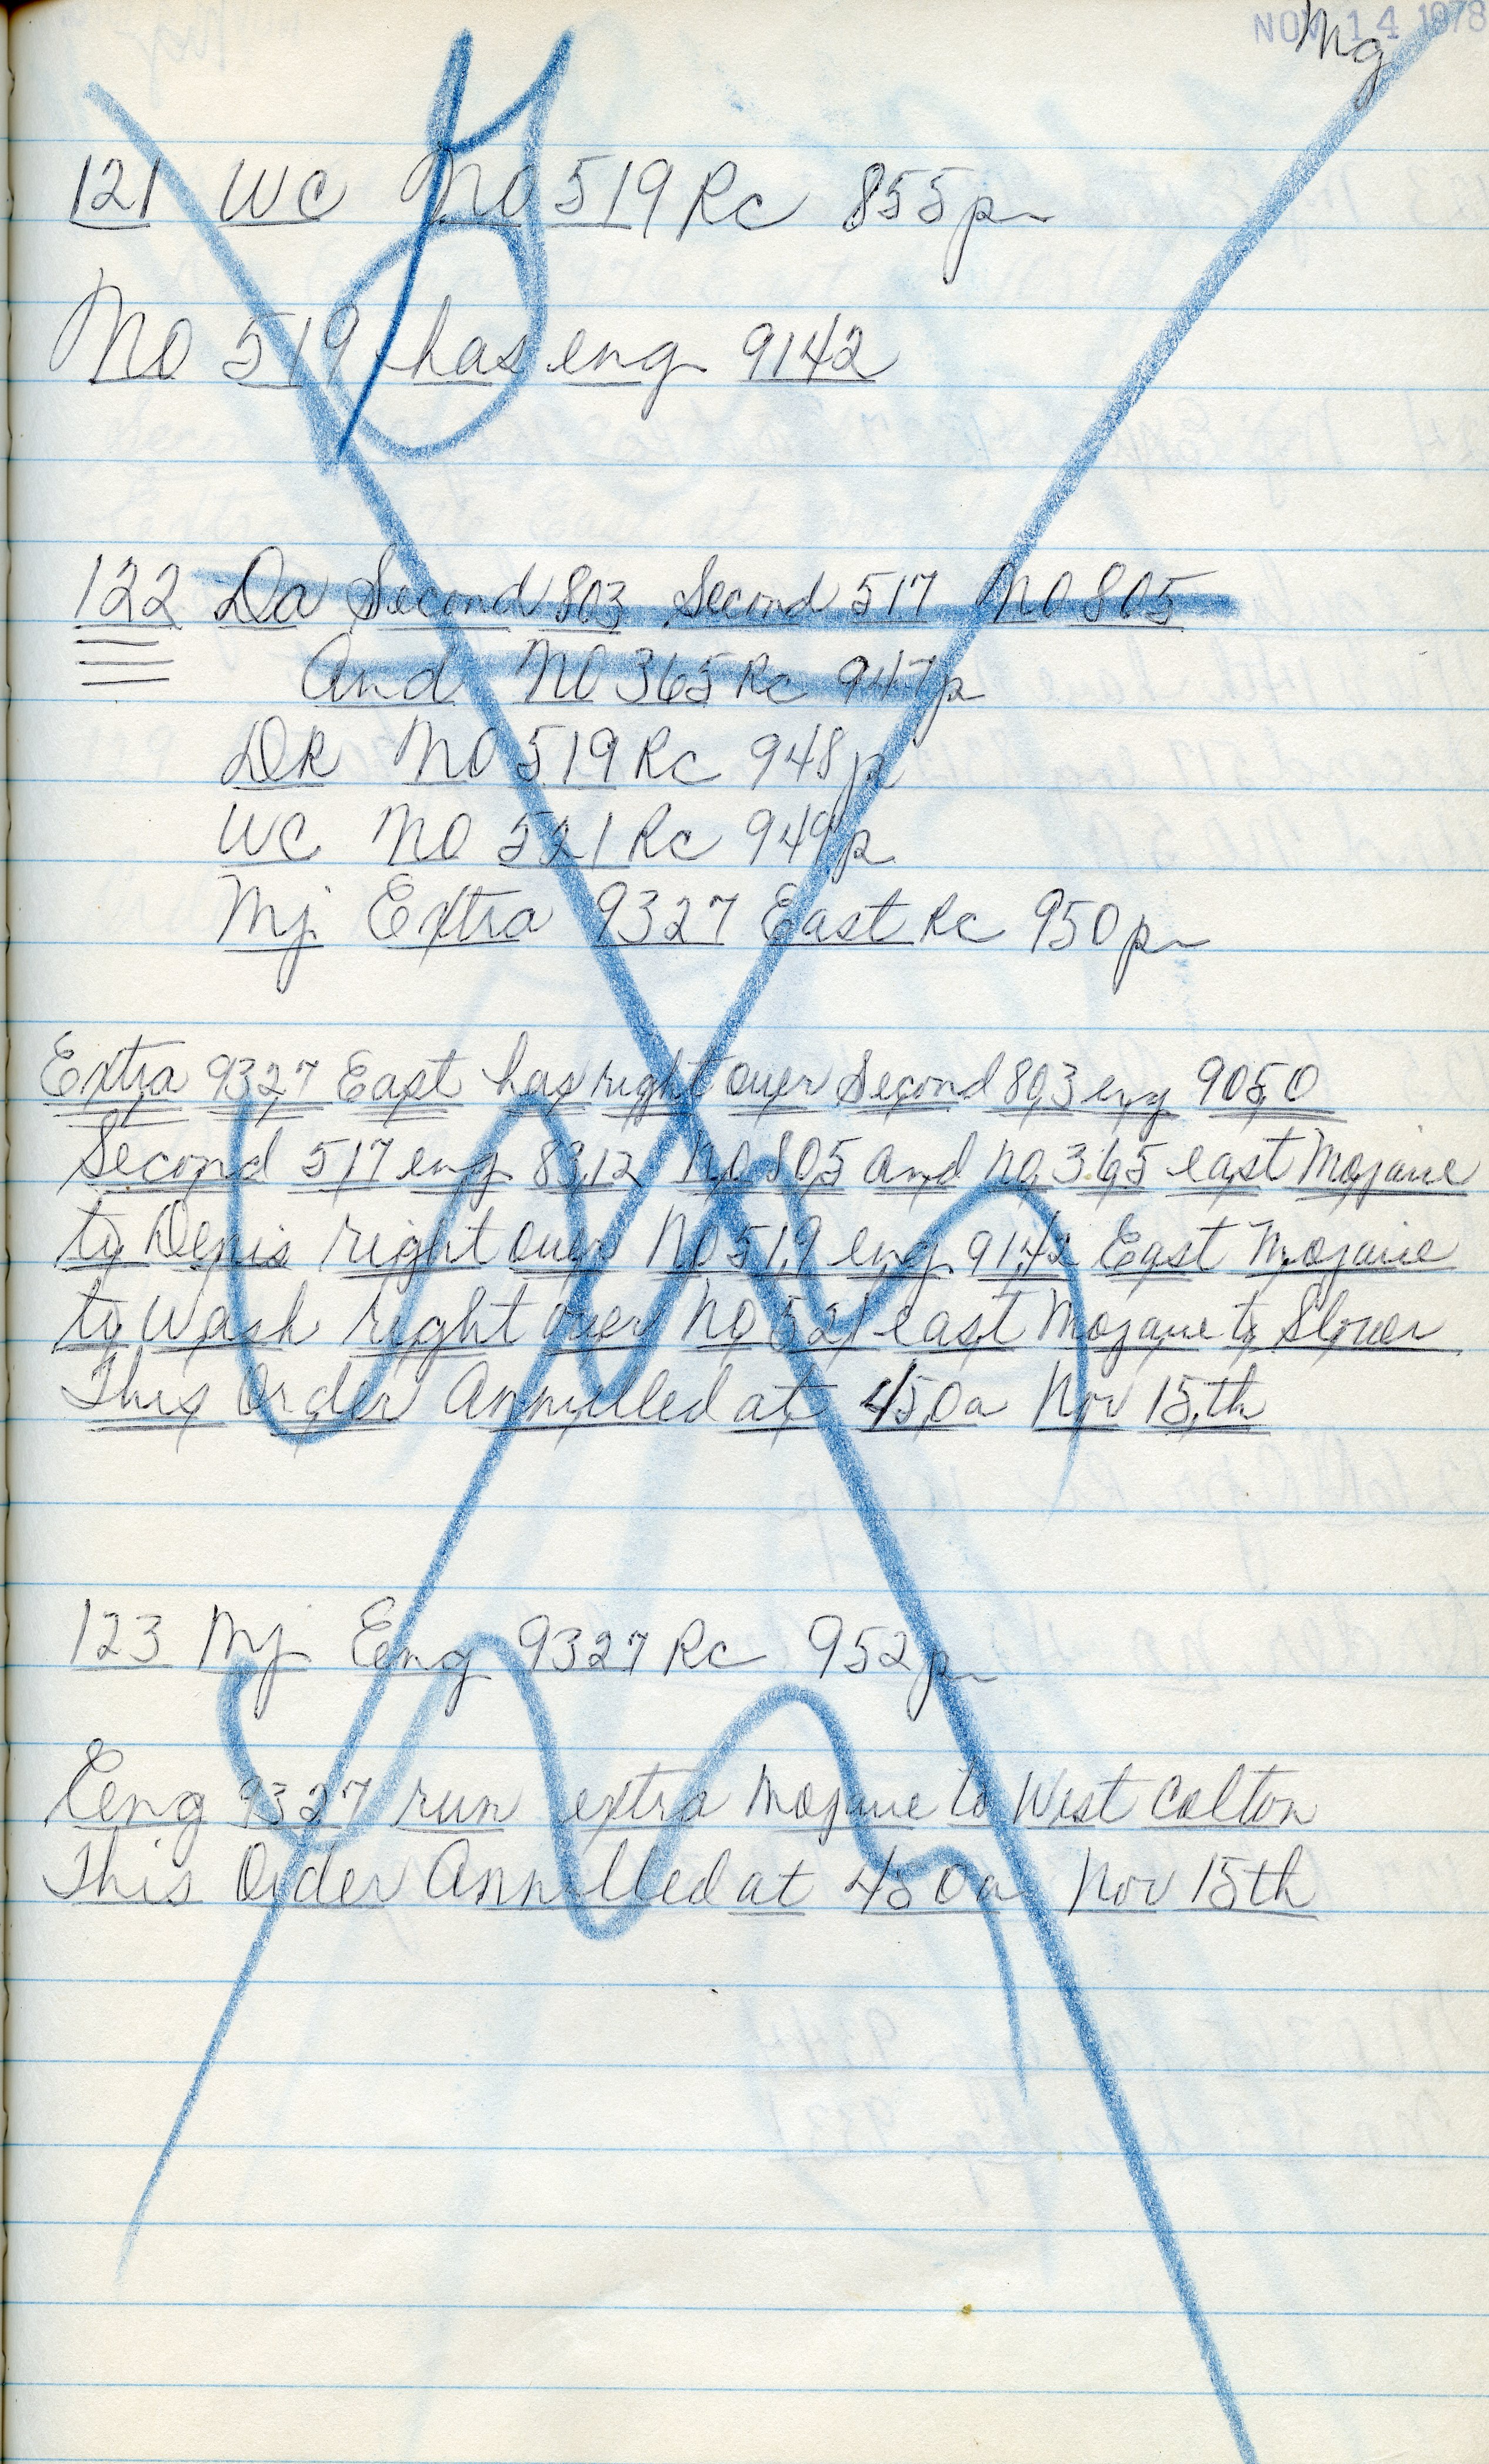 NOV 14 1978
mg
121 WC NO 519 Rc 855pm
NO 519 has eng 9142
122 Da Second 803 Second 517 NO 805
And NO 365 Rc 947p
DR NO 519 Rc 948p
WC NO 521 Rc 949p
Mj Extra 9327 East Rc 950pm
Extra 9327 East has right over Second 803 eng 9050
Second 517 eng 8312 No 805 and No 365 east Mojave
to Denis right over No 519 eng 9142 East Mojave
to Wash right over No 521 east Mojave to Slover
This Order Annulled at 450a Nov 15th
123 Mj Eng 9327 Rc 952pm
Eng 9327 run extra Mojave to West Colton
This Order Annulled at 450a Nov 15th